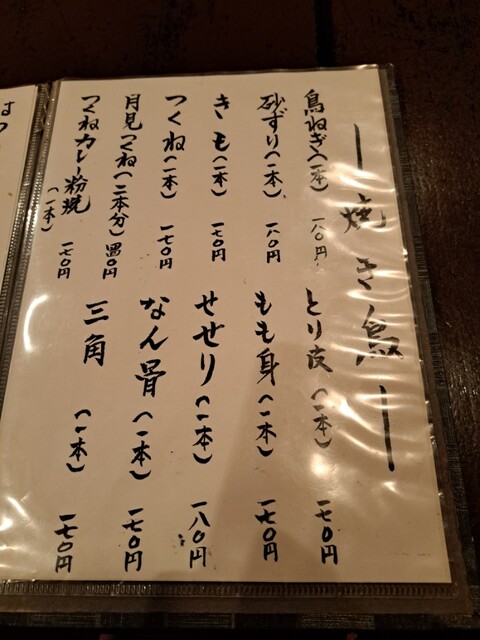 ー焼き鳥ー
鳥ねぎ(一本) 一八〇円
砂ずり(一本) 一八〇円
きも(一本) 一七〇円
つくね(一本) 一七〇円
月見つくね(二本分)
つくねカレー粉焼(一本) 一七〇円
とり皮(一本) 一七〇円
もも身(一本) 一七〇円
せせり(一本) 一八〇円
なん骨(一本) 一七〇円
三角(一本) 一七〇円